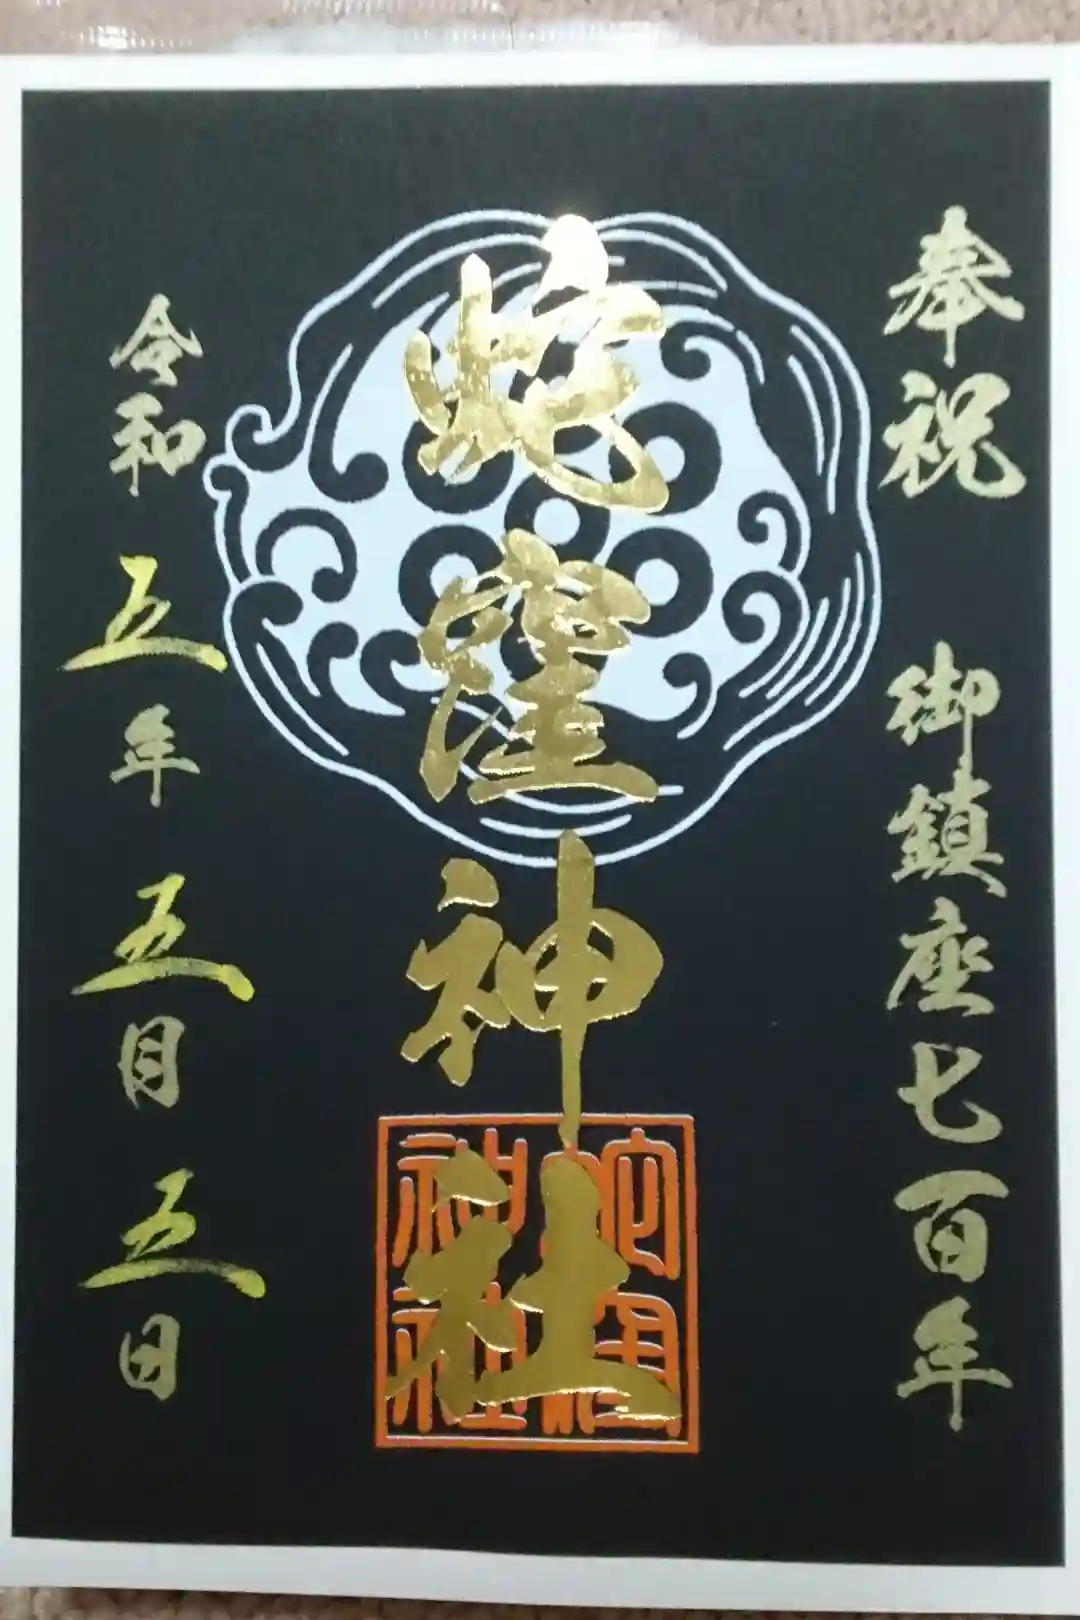 奉祝 御鎮座七百年
蛇窪神社
蛇窪
神社
令和五年五月五日